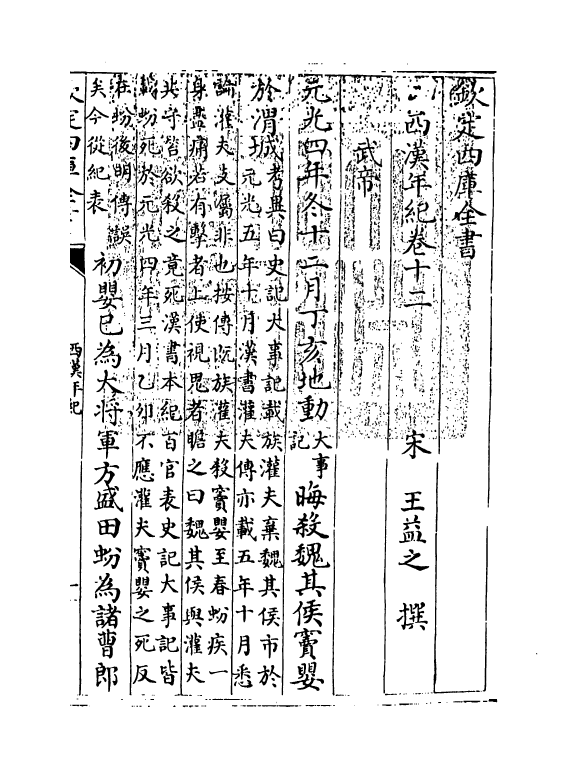 欽定四庫全書
西漢年紀卷十二　宋　王益之　撰
武帝
元光四年冬十二月丁亥地動大事記晦殺魏其侯竇嬰
於渭城考異曰史記大事記載族灌夫棄魏其侯市於
元光五年十月漢書灌夫傳亦載五年十月悉
論灌夫支屬非也按傳既族灌夫殺竇嬰至春蚡疾一
身盡痛若有擊者上使視鬼者瞻之曰魏其侯與灌夫
共守笞欲殺之竟死漢書本紀百官表史記大事記皆
載蚡死於元光四年三月乙卯不應灌夫竇嬰之死反
在蚡後明傳誤
矣今從紀表初嬰已為大将軍方盛田蚡為諸曹郎
欽定四庫全書
西漢年紀
一